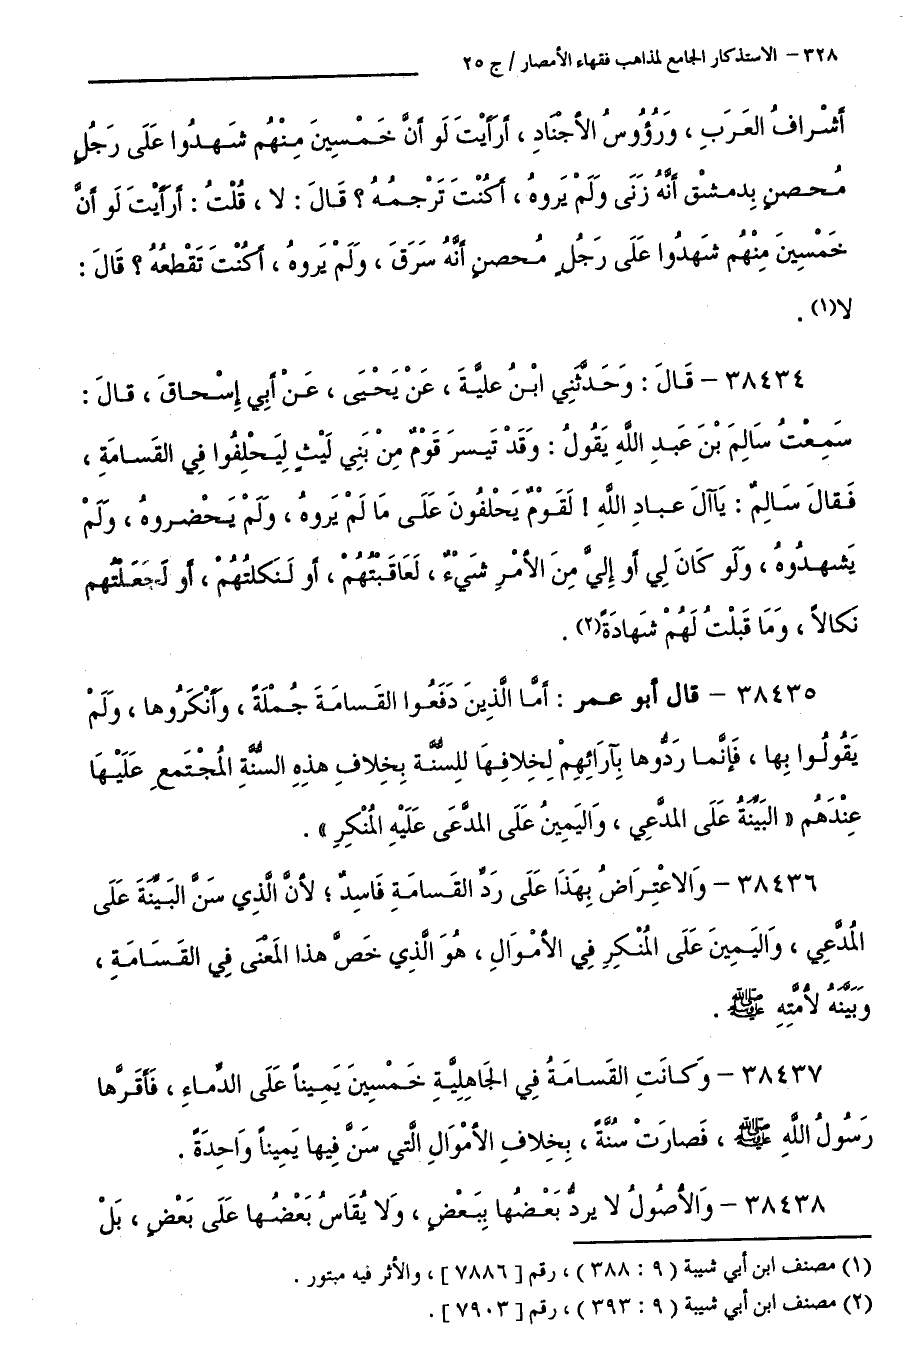 ٣٢٨ – الاستذكار الجامع لمذاهب فقهاء الأمصار / ج ٢٥
أَشْرافُ العَرَبِ ، وَرُؤُوسُ الأَجْنَادِ ، أَرأَيْتَ لَو أنَّ خَمْسِينَ مِنْهُم شَهدُوا عَلَى رَجُلٍ
مُحصنٍ بِدمشْق أَنَّهُ زَنَى وَلَمْ يَروهُ ، أَكُنْتَ تَرْجمُهُ ؟ قَالَ : لا ، قُلْتُ : أَرأَيْتَ لَو أنَّ
خَمْسِينَ مِنْهُم شَهدُوا عَلَى رَجُلٍ مُحصنٍ أَنَّهُ سَرَقَ ، وَلَمْ يَروهُ ، أَكُنْتَ تَقْطعُهُ ؟ قَالَ :
لا(١) .
٣٨٤٣٤ – قَالَ : وَحَدَّثَنِي ابْنُ عليَّةَ ، عَنْ يَحْيَى ، عَنْ أَبِي إِسْحاقَ ، قالَ :
سَمِعْتُ سَالِمَ بْنَ عَبدِ اللَّهِ يَقُولُ : وَقَدْ تَيسرَ قَوْمٌ مِنْ بَنِي لَيْثٍ لِيَحْلِفُوا فِي القَسامَةِ ،
فَقالَ سَالِمٌ : يَاآلَ عبادِ اللَّهِ ! لَقَوْمٌ يَحْلفُونَ عَلَى مَا لَمْ يَروهُ ، وَلَمْ يَحْضروهُ ، وَلَمْ
يَشهدُوهُ ، ولَو كَانَ لِي أو إِليَّ مِنَ الأَمْرِ شَيْءٌ ، لَعَاقَبْتُهُمْ ، أو لَنكلتُهُمْ ، أو لَجَعَلْتُهم
نَكالاً ، وَمَا قَبلْتُ لَهُمْ شَهَادَةً(٢) .
٣٨٤٣٥ – قال أبو عمر : أمَّا الَّذِينَ دَفَعُوا القَسامَةَ جُمْلَةً ، وَأَنْكَرُوها ، وَلَمْ
يَقُولُوا بِها ، فَإنَّما رَدُّوها بِآرَائِهِمْ لِخِلافِهَا لِلسُّنَّة بِخلافِ هذِهِ السُّنَّةِ المُجْتَمعِ عَلَيْهَا
عِنْدَهُم « البَيِّنَةُ عَلَى المدَّعِي ، وَاليَمِينُ عَلَى المدَّعَى عَلَيْهِ المُنْكِرِ » .
٣٨٤٣٦ – وَالاعْتِرَاضُ بِهَذَا عَلَى رَدِّ القَسامَةِ فَاسِدٌ ؛ لأنَّ الَّذِي سَنَّ البَيِّنَةَ عَلَى
المُدَّعِي ، وَاليَمِينَ عَلَى المُنْكِرِ فِي الأَمْوَالِ ، هُوَ الَّذِي خَصَّ هذا المَعْنَى فِي القَسَامَةِ ،
وَبَيَّنَهُ لأُمَّتِهِ ﷺ .
٣٨٤٣٧ – وَكانَتِ القَسامَةُ فِي الجَاهِلِيَّةِ خَمْسِينَ يَمِيناً عَلَى الدِّماءِ ، فَأَقَرَّها
رَسُولُ اللَّهِ ﷺ ، فَصارَتْ سُنَّةً ، بِخلافِ الأَمْوَالِ الَّتي سَنَّ فِيها يَمِيناً وَاحِدَةً .
٣٨٤٣٨ – وَالأُصُولُ لا يردُّ بَعْضُها بِبَعْضٍ ، وَلا يُقَاسُ بَعْضُها عَلَى بَعْضٍ ، بَلْ
(١) مصنف ابن أبي شيبة ( ٩ : ٣٨٨ ) ، رقم [ ٧٨٨٦ ] ، والأثر فيه مبتور .
(٢) مصنف ابن أبي شيبة ( ٩ : ٣٩٣ ) ، رقم [ ٧٩٠٣ ] .